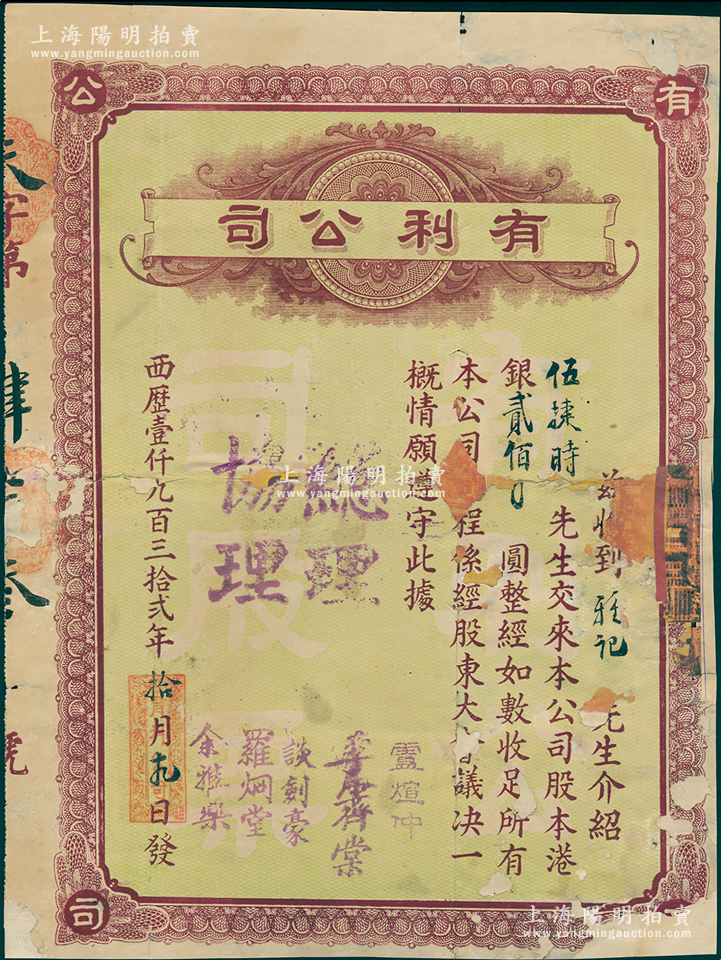 上海陽明拍賣
www.yangmingauction.com
公
有
有利公司
茲收到 雅記 先生介紹
伍捷時 先生交來本公司股本港
銀貳佰 圓整經如數收足所有
本公司 程係經股東大 議決一
概情願遵守此據
總理
協理
盧煊仲
李齊棠
談劍豪
羅炯堂
余雅樂
西歷壹仟九百三拾弍年拾月 日發
字第 肆 號
上海陽明拍賣
www.yangmingauction.com
司
上海陽明拍賣
www.yangmingauction.com